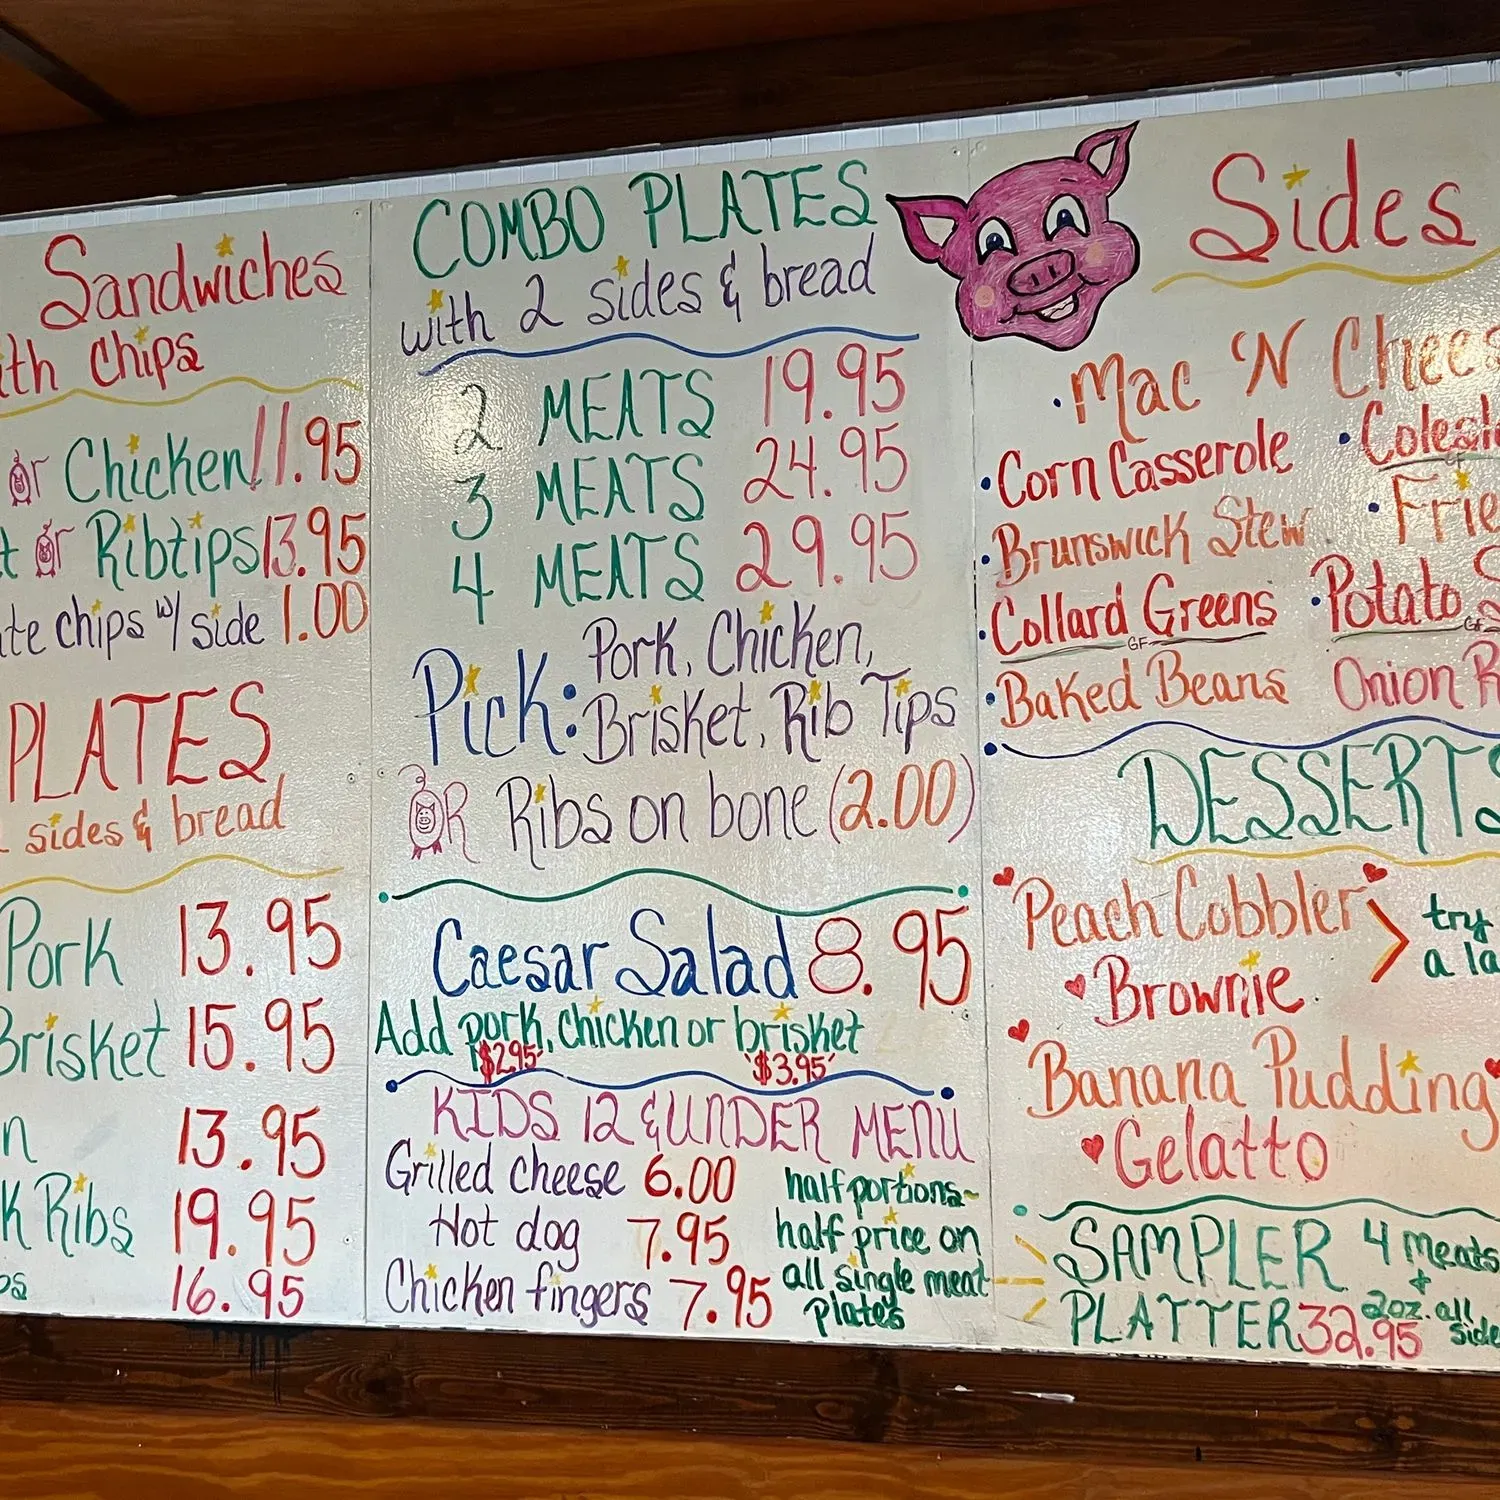 Sandwiches
ith chips
or Chicken 11.95
t or Ribtips 13.95
te chips w/ side 1.00
PLATES
sides & bread
Pork 13.95
Brisket 15.95
n 13.95
K Ribs 19.95
ps 16.95
COMBO PLATES
with 2 sides & bread
2 MEATS 19.95
3 MEATS 24.95
4 MEATS 29.95
Pick: Pork, Chicken,
Brisket, Rib Tips
OR Ribs on bone (2.00)
Caesar Salad 8.95
Add pork, chicken or brisket
$2.95 $3.95
KIDS 12 & UNDER MENU
Grilled cheese 6.00
Hot dog 7.95
Chicken fingers 7.95
half portions~
half price on
all single meat
plates
Sides
• Mac 'N Chees
• Corn Casserole
• Brunswick Stew
• Collard Greens
GF
• Baked Beans
• Colesl
• Frie
• Potato S
GF
Onion R
DESSERTS
Peach Cobbler
Brownie
try
a la
Banana Pudding
Gelatto
SAMPLER 4 meats
+
PLATTER 32.95 2oz. all
side